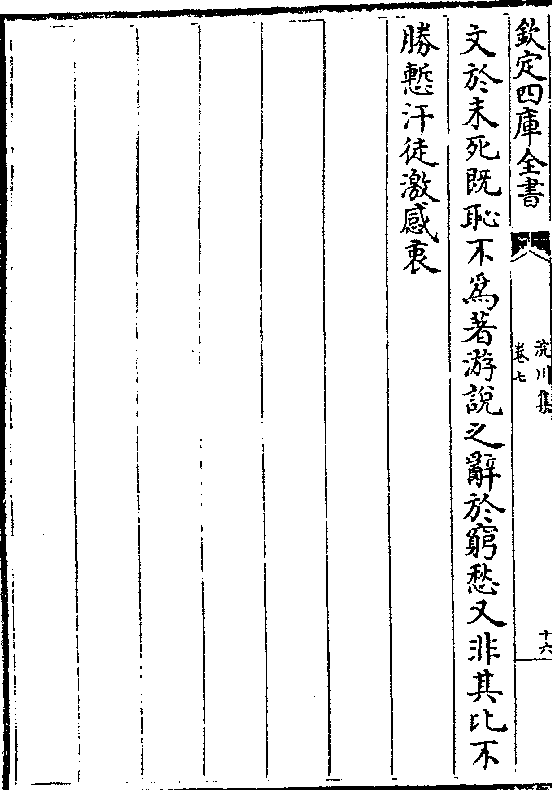 欽定四庫全書
荒川集
卷七
十六
文於未死既恥不為著游說之辭於窮愁又非其比不
勝慙汗徒激感衷